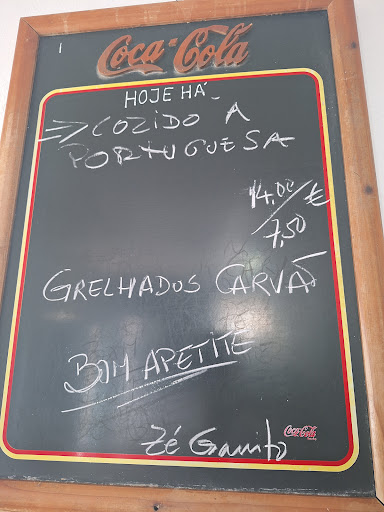 Coca-Cola
HOJE HÁ
=> COZIDO A
PORTUGUESA
14,00/€
7,50
GRELHADOS CARVÃ
BOM APETITE
Coca-Cola
Zé